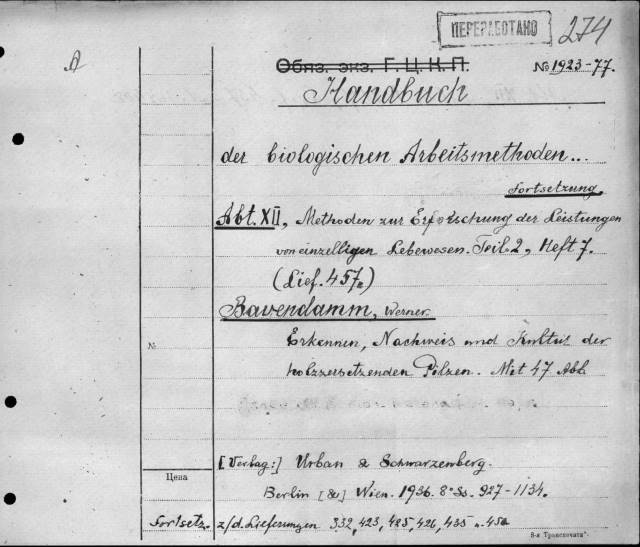 ПЕРЕРАБОТАНО
274
A
Обяз. экз. Г.Ц.К.П.
№ 1923-77.
Handbuch
der biologischen Arbeitsmethoden...
Fortsetzung.
Abt. XII, Methoden zur Erforschung der Leistungen
von einzelligen Lebewesen. Teil 2, Heft 7.
(Lief. 457.)
Bavendamm, Werner.
Erkennen, Nachweis und Kultur der
№
holzzersetzenden Pilzen. Mit 47 Abb
[Verlag:] Urban & Schwarzenberg.
Цена
Berlin [&] Wien. 1936. 8° Ss. 927-1134.
Fortsetz. z/d. Lieferungen 332, 423, 425, 426, 435
8-я Транспечать".